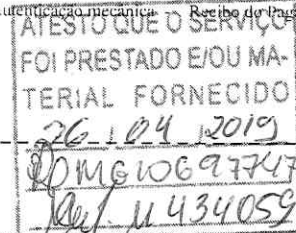 utenticação mecânica Recibo do Pag
ATESTO QUE O SERVIÇO
FOI PRESTADO E/OU MA-
TERIAL FORNECIDO
26 / 04 / 2019
MG10697747